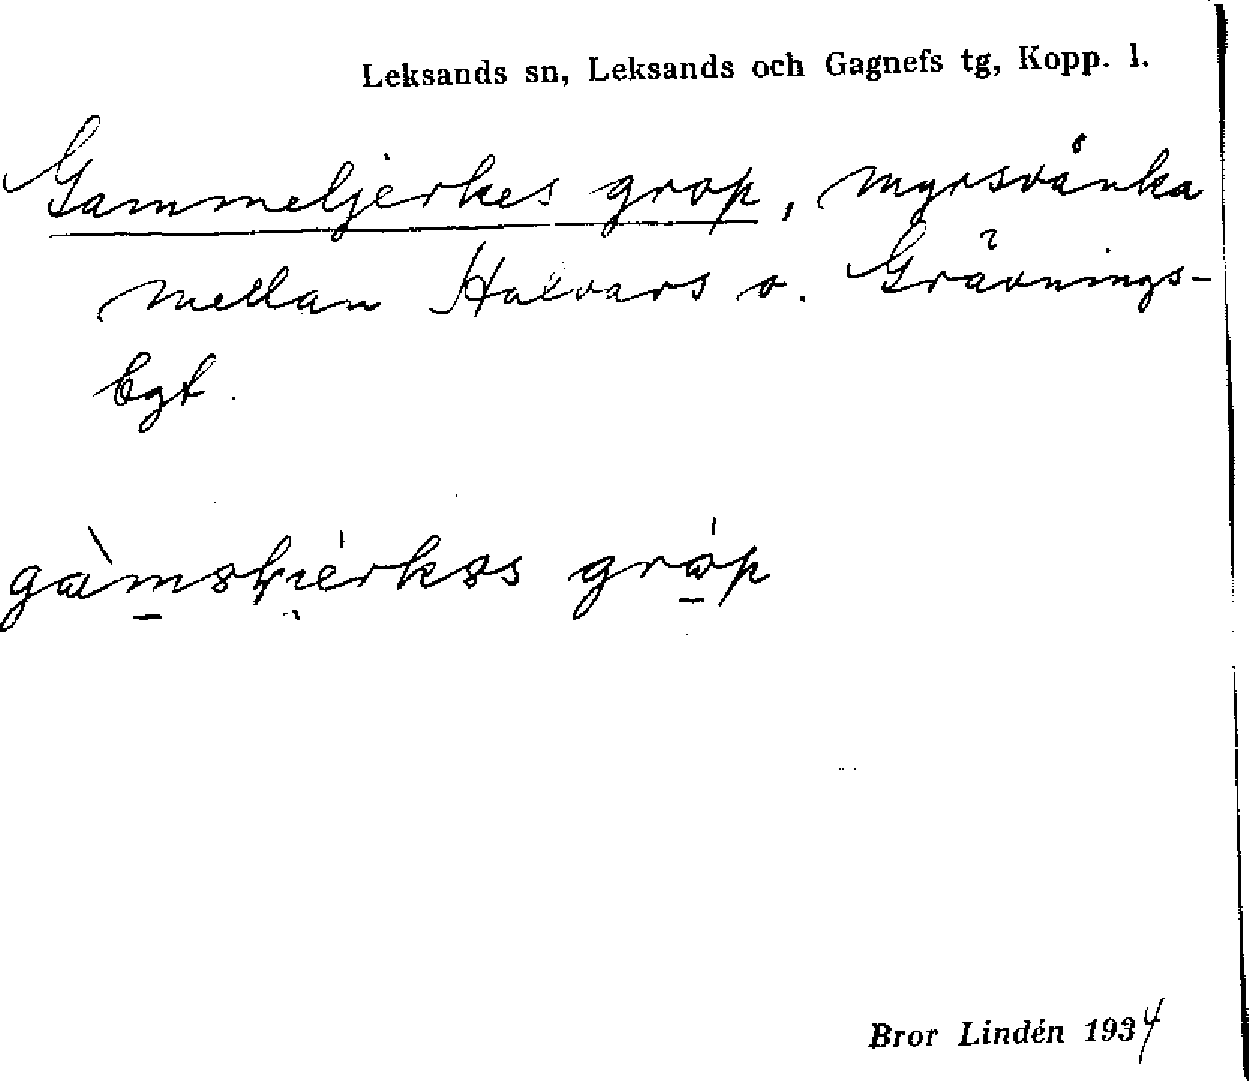 Leksands sn, Leksands och Gagnefs tg, Kopp. l.
Gammeljerkes grop, myrsvånka
mellan Halvars o. Grävnings-
bgt.
grop
Bror Lindén 1934